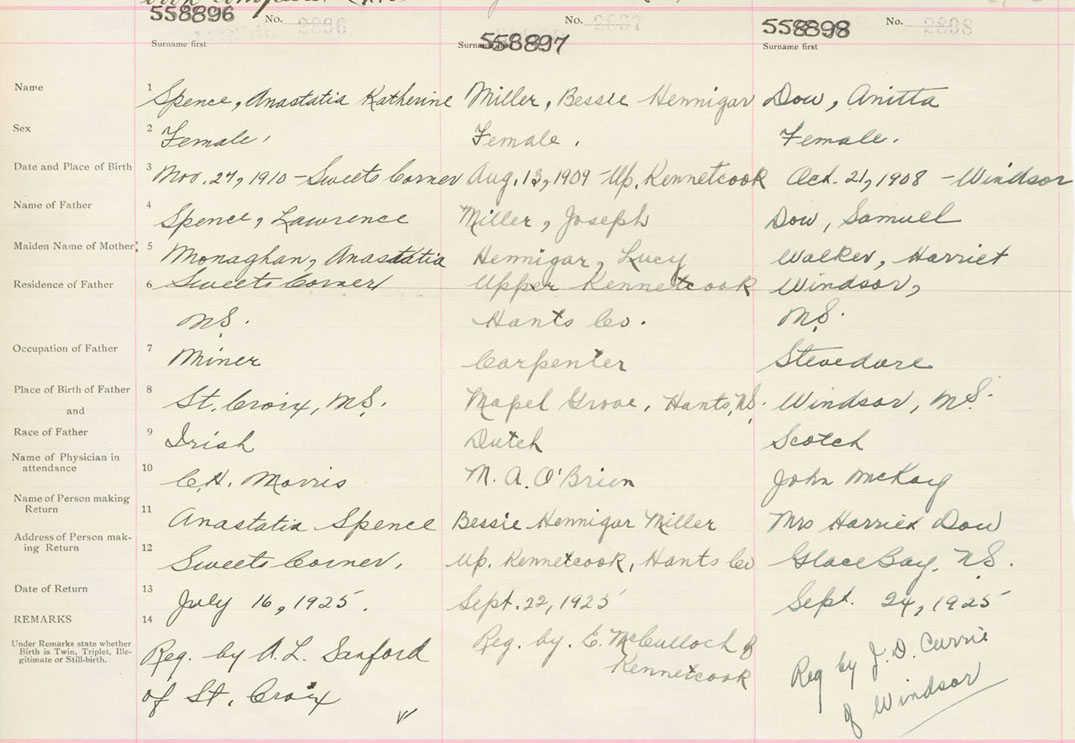 558896 No. 2896 No. 2897 558898 No. 2898
Surname first 558897 Surname first
Name 1 Spence, Anastatia Katherine Miller, Bessie Hennigar Dow, Anitta
Sex 2 Female. Female. Female.
Date and Place of Birth 3 Nov. 27, 1910 - Sweets Corner Aug. 13, 1909 - Up. Kennetcook Oct. 21, 1908 - Windsor
Name of Father 4 Spence, Lawrence Miller, Joseph Dow, Samuel
Maiden Name of Mother 5 Monaghan, Anastatia Hennigar, Lucy Walker, Harriet
Residence of Father 6 Sweets Corner Upper Kennetcook Windsor,
N.S. Hants Co. N.S.
Occupation of Father 7 Miner Carpenter Stevedore
Place of Birth of Father 8 St. Croix, N.S. Mapel Grove, Hants, N.S. Windsor, N.S.
and
Race of Father 9 Irish Dutch Scotch
Name of Physician in
attendance 10 C.H. Morris M. A. O'Brien John McKay
Name of Person making
Return 11 Anastatia Spence Bessie Hennigar Miller Mrs Harriet Dow
Address of Person mak-
ing Return 12 Sweets Corner. Up. Kennetcook, Hants Co Glace Bay, N.S.
Date of Return 13 July 16, 1925. Sept. 22, 1925 Sept. 24, 1925
REMARKS 14
Under Remarks state whether
Birth is Twin, Triplet, Ille-
gitimate or Still-birth.
Reg. by A. L. Sanford
of St. Croix
Reg. by. E. McCulloch of
Kennetcook
Reg by J. D. Currie
of Windsor